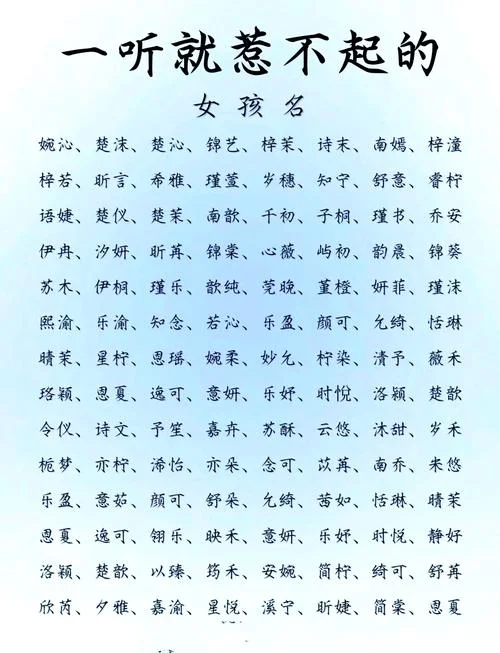 一听就惹不起的
女孩名
婉沁、楚沫、楚沁、锦艺、梓茉、诗末、南嫣、梓潼
梓若、昕言、希雅、瑾萱、岁穗、知宁、舒意、睿柠
语婕、楚仪、楚茉、南歆、千初、子桐、瑾书、乔安
伊冉、汐妍、昕苒、锦棠、心薇、屿初、韵晨、锦葵
苏木、伊桐、瑾乐、歆纯、莞晚、堇橙、妍菲、瑾沫
熙渝、乐渝、知念、若沁、乐盈、颜可、允绮、恬琳
晴茉、星柠、思瑶、婉柔、妙允、柠染、清予、薇禾
珞颖、思夏、逸可、意妍、乐妤、时悦、洛颖、楚歆
令仪、诗文、予笙、嘉卉、苏酥、云悠、沐甜、岁禾
栀梦、亦柠、浠怡、亦朵、念可、苡苒、南乔、米悠
乐盈、意茹、颜可、舒朵、允绮、茜如、恬琳、晴茉
思夏、逸可、翎乐、映禾、意妍、乐妤、时悦、静好
洛颖、楚歆、以臻、筠禾、安婉、简柠、绮可、舒苒
欣芮、夕雅、嘉渝、星悦、溪宁、昕婕、简棠、思夏